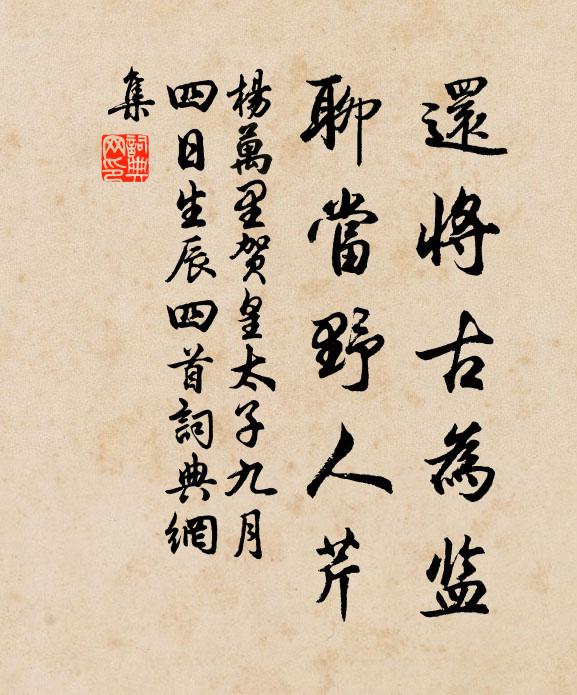 還將古為监
聊當野人芹
楊萬里贺皇太子九月
四日生辰四首詞典網
集
詞典
网印